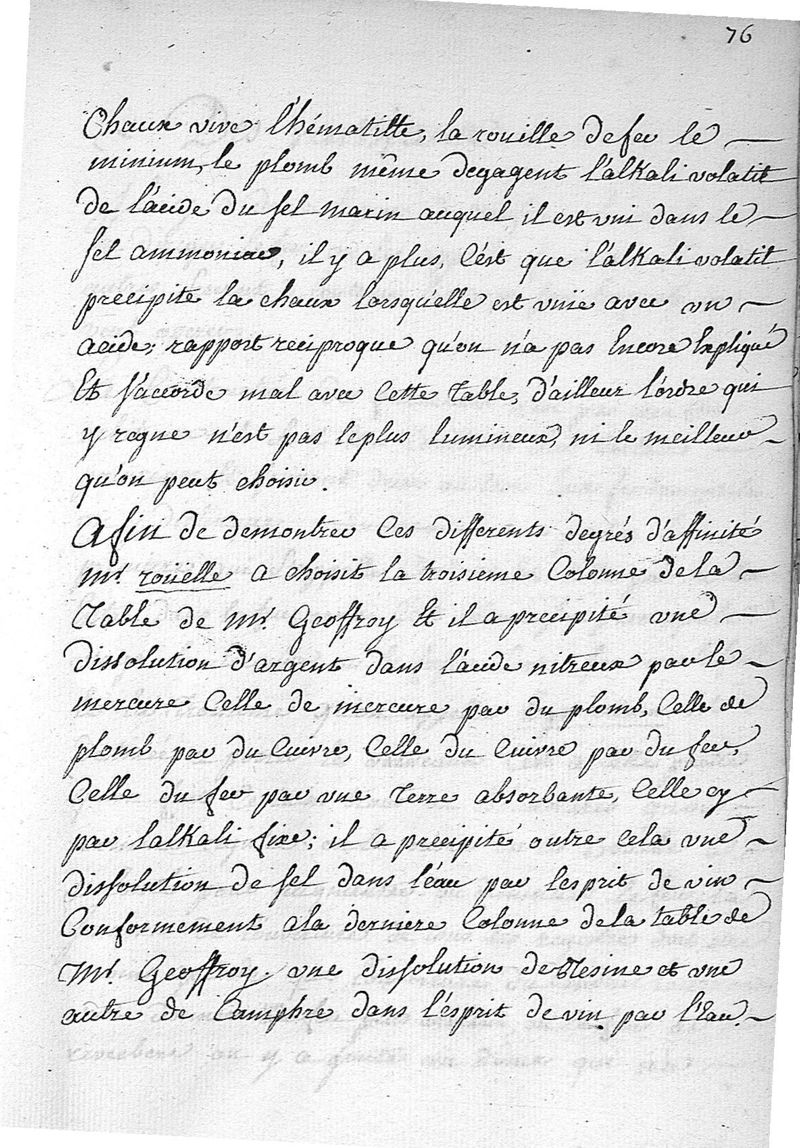 76
Chaux vive l'hématitte, la rouille de fer le —
minium, le plomb même degagent l'alkali volatil
de l'acide du sel marin auquel il est uni dans le —
sel ammoniac, il y a plus, C'est que l'alkali volatil
precipite la chaux lorsqu'elle est unie avec un —
acide; rapport reciproque qu'on n'a pas Encore Expliqué
Et s'accorde mal avec Cette Table, d'ailleur l'ordre qui
y regne n'est pas le plus lumineux, ni le meilleur —
qu'on peut choisir.
Afin de demontrer Ces differents degrés d'affinité
Mr. roüelle a choisit la troisieme Colonne de la —
Table de Mr. Geoffroy Et il a precipité une —
dissolution d'argent dans l'acide nitreux par le —
mercure Celle de mercure par du plomb, Celle de
plomb par du Cuivre, Celle du Cuivre par du fer,
Celle du fer par une Terre absorbante, Celle cy —
par l'alkali fixe; il a precipité outre Cela une —
dissolution de sel dans l'eau par l'esprit de vin —
Conformement a la derniere Colonne de la table de
Mr. Geoffroy. une dissolution de Resine et une
autre de Camphre dans l'esprit de vin par l'Eau. —